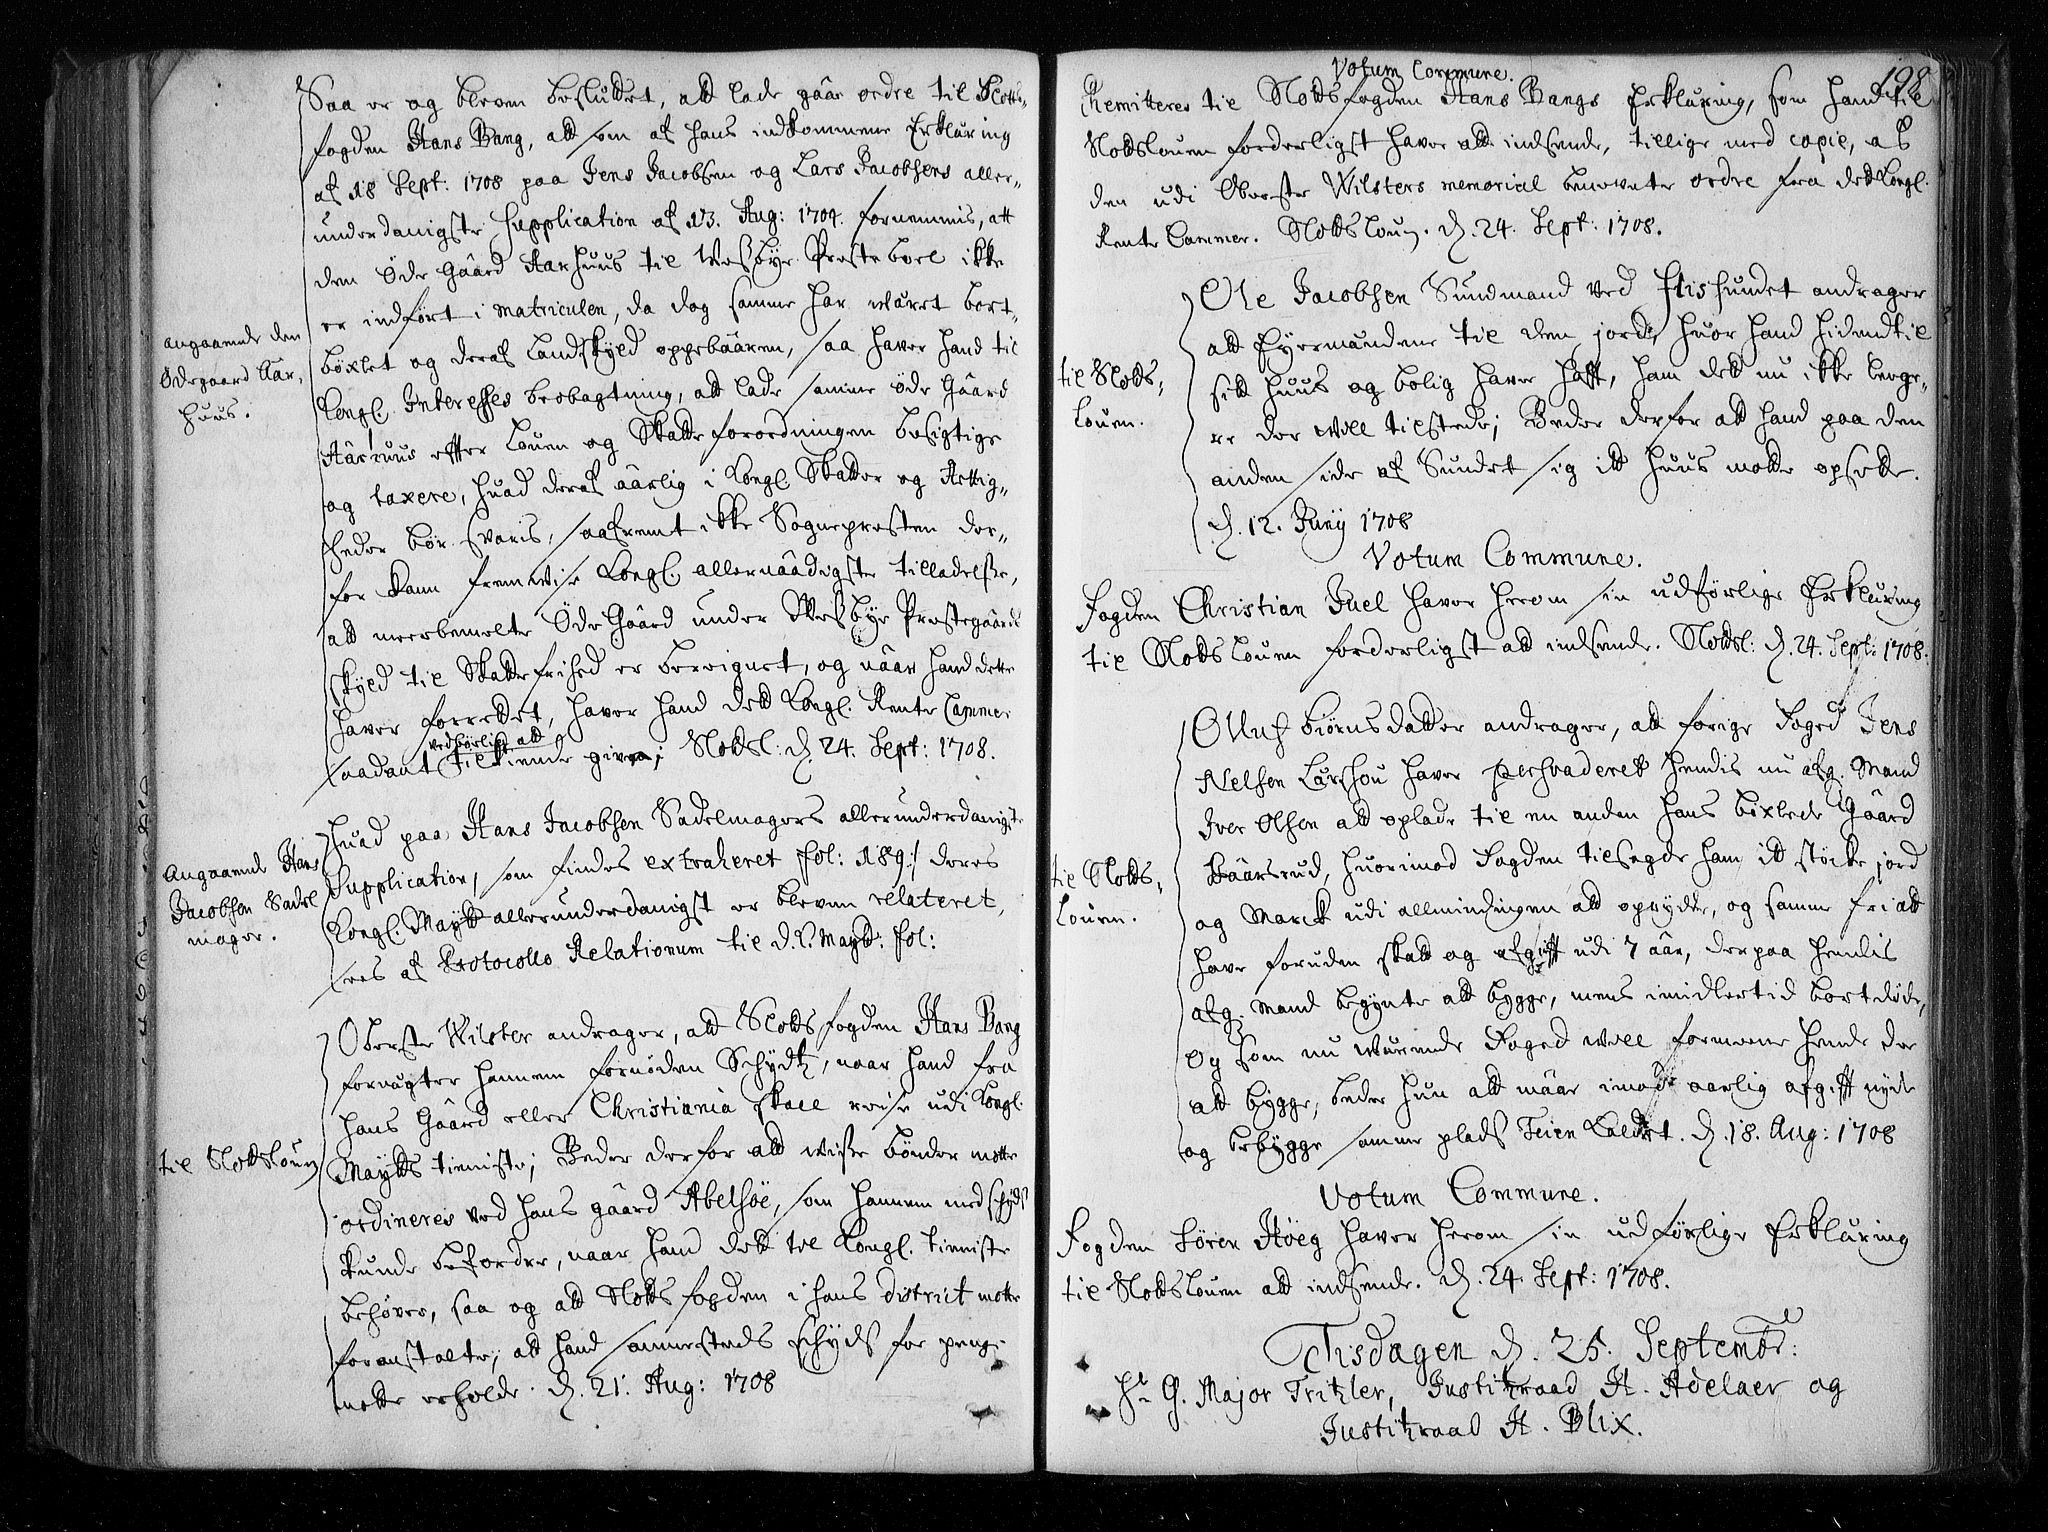 Saa er og bleven besluttet, att lade gåår ordre til Slotts-
fogden Hans Bang, att som af hans indkommene Erklæring
af 18 Sept: 1708 paa Jens Jacobsen og Lars Jacobsens aller-
underdanigste Supplication af 13. Aug: 1704. fornemmis, att
den Øde Gåård Aarhuus til Wesbye Presteboel ikke
er indført i matriculen, da dog samme har wæret bort-
angaaende den
Ødegaard Aar-
huus.
böxlet og deraf Landskyld oppebååren, saa haver hand til
Kongl. Interesses beobagtning, att lade samme öde Gåård
Aarhuus effter Louen og Skatteforordningen besigtige
og taxere, huad deraf åårlig i Kongl. Skatter og Rettig-
heder bör svaris, saafremt ikke Sognepresten der-
for kann fremwise Kongl. allernåådigste tilladelsse,
att meerbemelte Öde Gåård under Wesbye Prestegåårds
skyld til Skattefrihed er beregnet, og nåår hand dette
haver forrettet, haver hand dett Kongl. Rente Cammer
vedbørligt att
saadant tilkiende given; Slottsl: d. 24. Sept: 1708.
Angaaende Hans
Jacobsen Sadel
mager.
Huad paa Hans Jacobsen Sadelmagers allerunderdanigste
Supplication, som findes extraheret fol: 189: / deres
Kongl. Maytt allerunderdanigst er bleven relateret,
sees af Protocollo Relationum til D. K. Maytt: fol:
til Slottslouen
Oberste Wilster andrager, att Slottsfogden Hans Bang
forvægter hannem fornöden Schydtz, naar hand fra
hans Gåård eller Christiania skall reise udi Kongl.
Maytts tienniste; Beder derfor att wisse bönder motte
ordineres ved hans gåård Abelsöe, som hannem med schyds
kunde befordre, naar hand dett til Kongl. tienniste
behöver, saa og att Slottsfogden i hans district motte
foranstalte, att hand sammesteds schyds for penge
motte erholde. d. 21. Aug: 1708
198
Votum Commune.
Remitteres til Slottsfogden Hans Bangs Erklæring, som hand til
Slottslouen forderligst haver att indsende, tillige med copie, af
den udi Oberste Wilsters memorial benevnte ordre fra dett Kongl.
Rente Cammer. Slottslouen. d. 24. Sept: 1708.
til Slotts-
Louen.
Ole Jacobsen Sundmand ved Flissundet andrager
att Eyermændene til den jord, huor hand hidendtil
sitt huus og bolig haver hafft, ham dett nu ikke lenge-
re der will tilstede; Beder derfor att hand paa den
anden side af Sundet sig itt huus motte opsette.
d. 12. Junij 1708
Votum Commune.
Fogden Christian Juel haver herom sin udförlige Erklæring
til Slottslouen forderligst att indsende. Slottsl: d. 24. Sept: 1708.
til Slotts-
Louen.
Olluf Biörnsdatter andrager, att forige Foged Jens
Nelsen Larshou haver pershvaderet hendis nu afg. Mand
Iver Olsen att oplade til en anden hans böxlede Gåård
Båårsrud, huorimod Fogden tilsagde ham itt stöcke jord
og Marck udi allmindingen att oprydde, og samme fri att
have foruden skatt og afgifft udi 7 åår, der paa hendis
afg. mand begynte att bygge, mens imidlertid bortdöde,
Og som nu wærende Foged will formeene hende der
att bygge, beder hun att måår imod aarlig afgifft nyde
og bebygge samme plads Feien kaldet. d. 18. Aug: 1708
Votum Commune.
Fogden Sören Höeg haver herom sin udförlige Erklæring
til Slottslouen att indsende. d. 24. Sept: 1708.
Tiisdagen d. 25. Septembr:
Hr. G. Major Tritzler, Justitzraad H. Adelaer og
Justitzraad H. Blix.